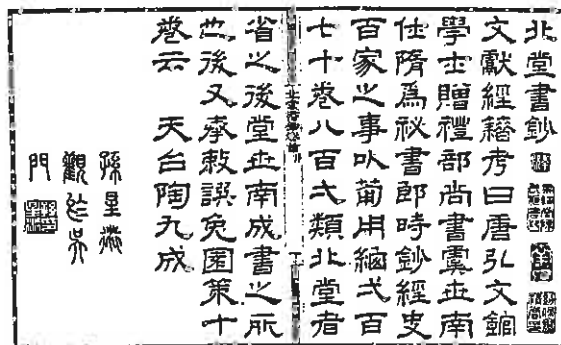 北堂書鈔
文獻經籍考曰唐弘文館
學士贈禮部尚書虞世南
仕隋爲祕書郎時鈔經史
百家之事以葡用緫弌百
七十卷八百弌類北堂者
省之後堂世南成書之所
也後又承敕譔兔園策十
卷云　天台陶九成
孫星衍
觀於吳
門